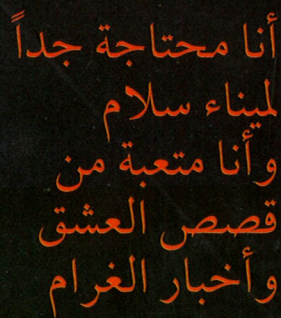 أنا محتاجة جداً
لميناء سلام
وأنا متعبة من
قصص العشق
وأخبار الغرام